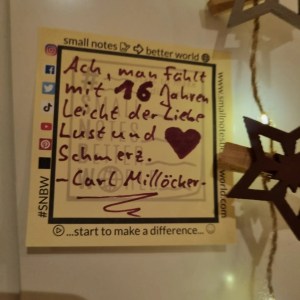 small notes better world
Ach, man fühlt
mit 16 Jahren
Leicht der Liebe
Lust und
Schmerz.
- Carl Millöcker -
#SNBW
...start to make a difference...